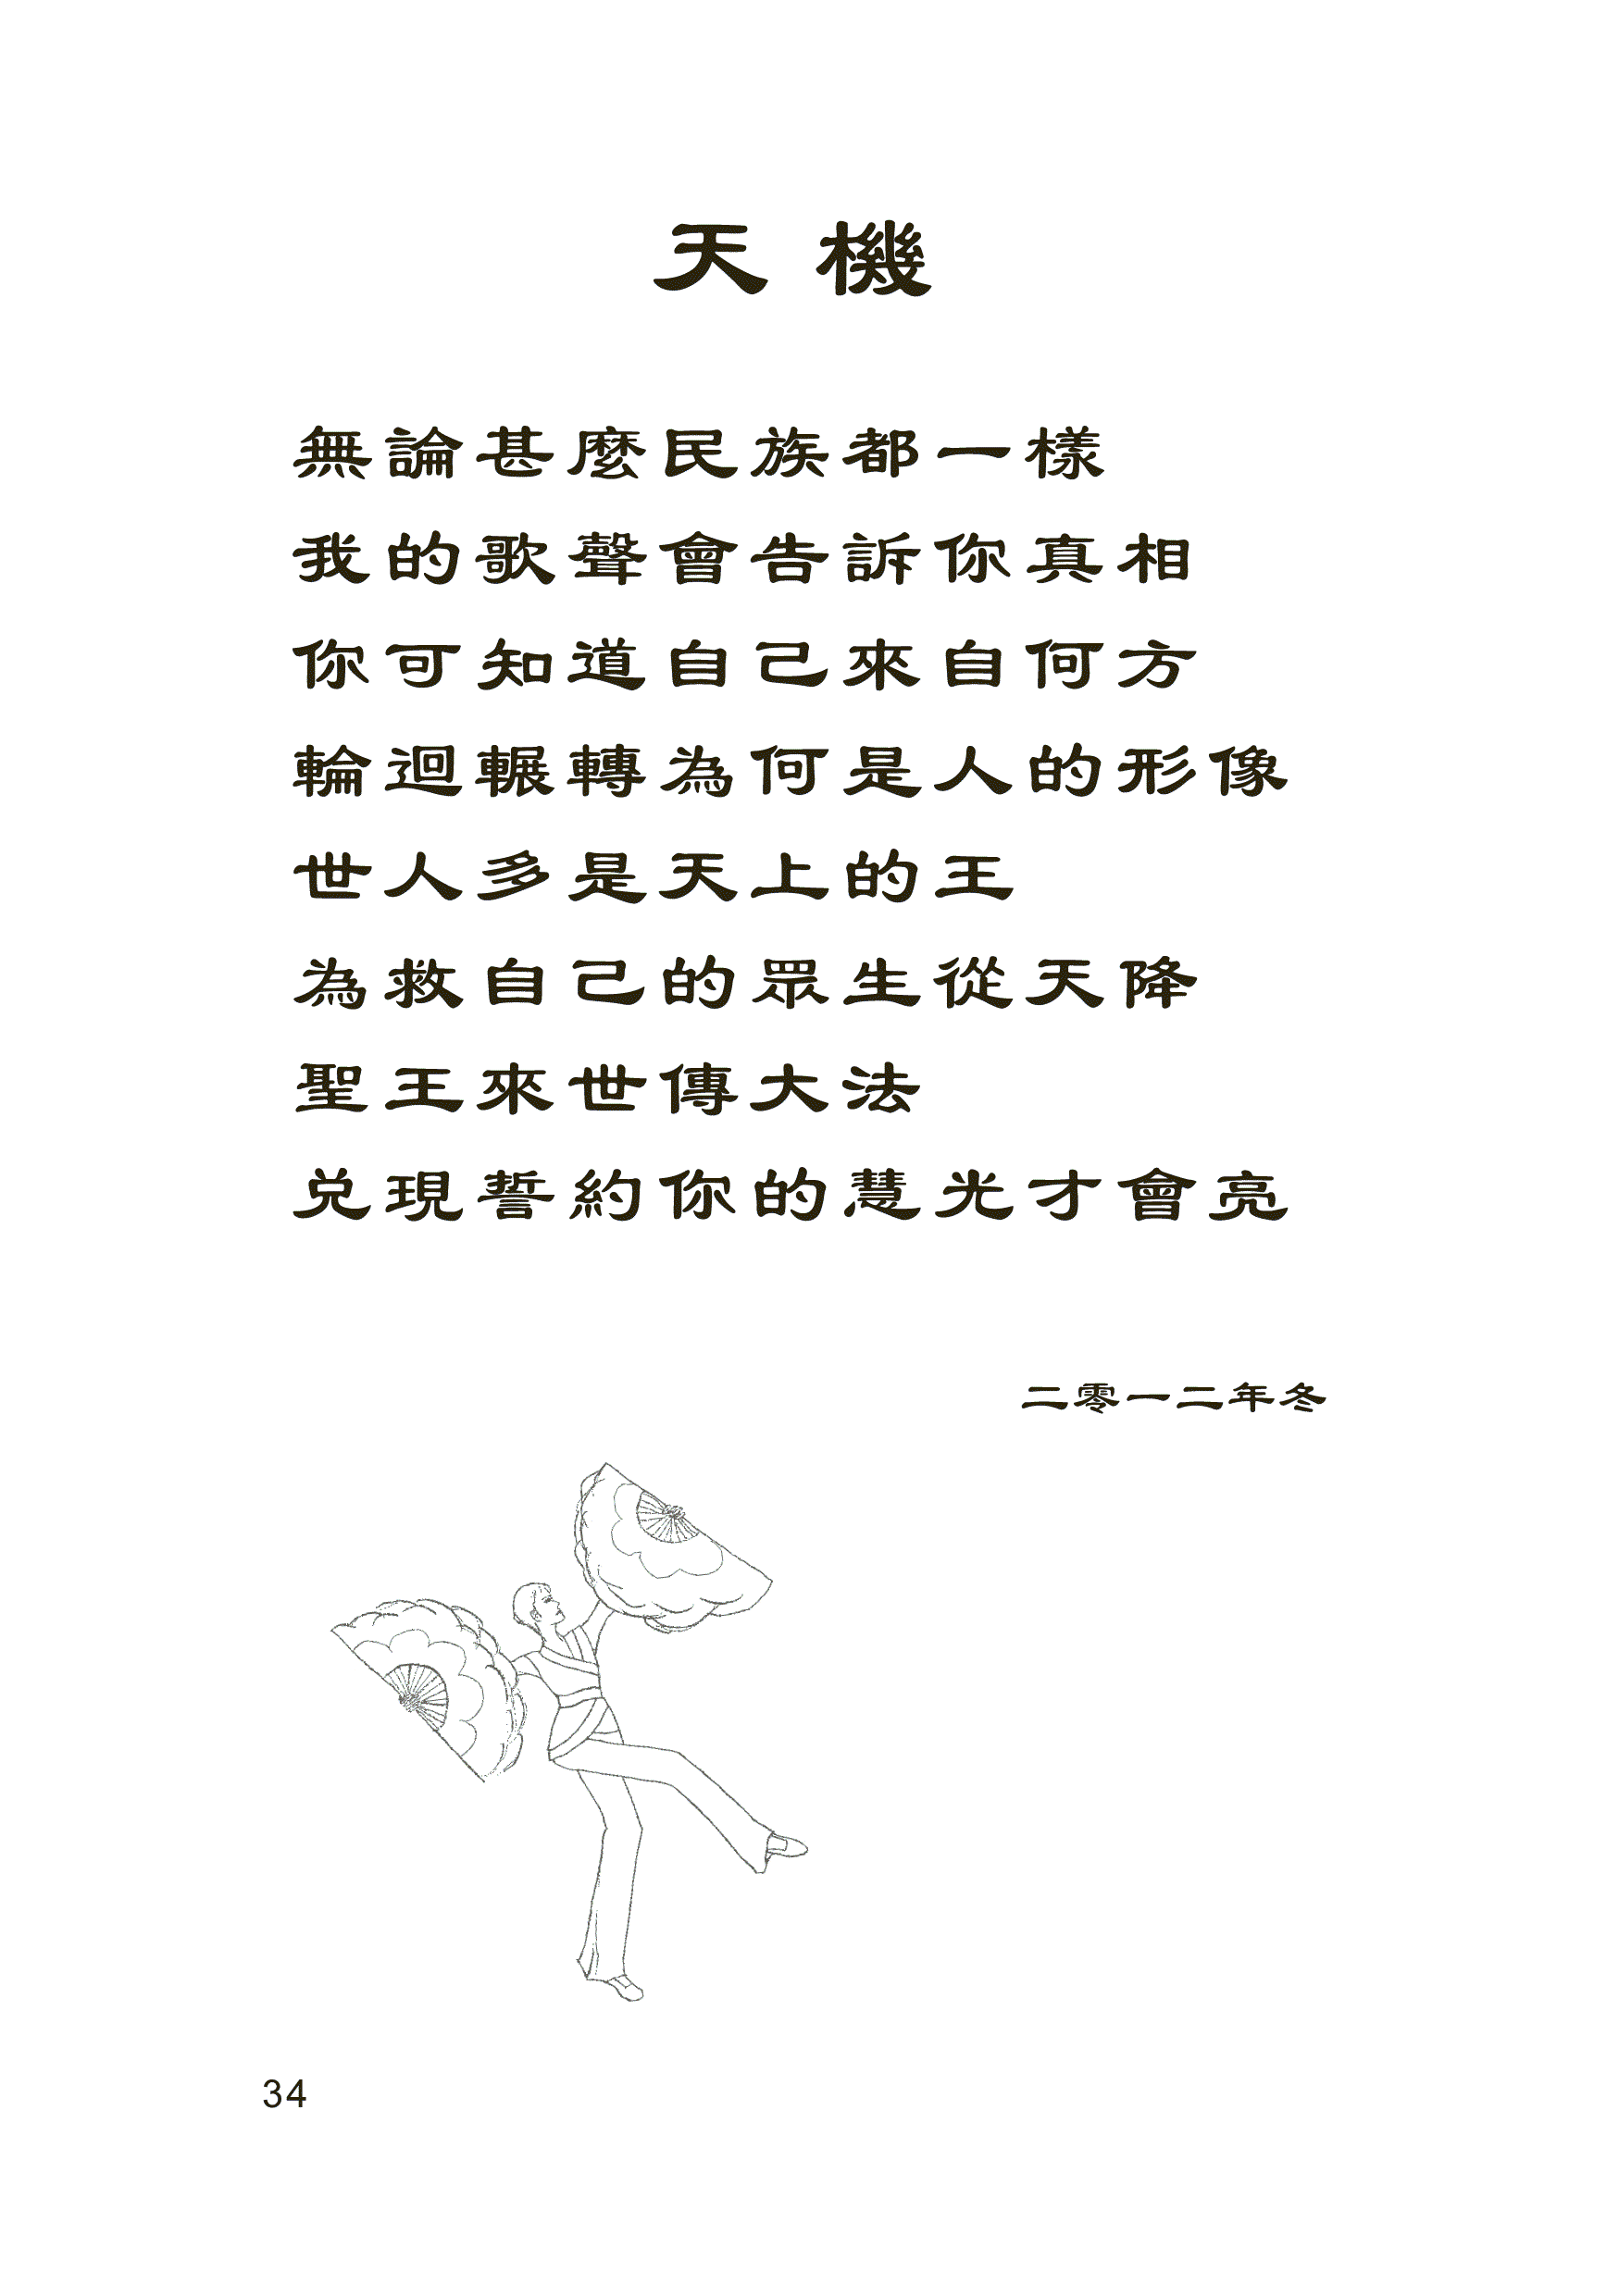 天機
無論甚麼民族都一樣
我的歌聲會告訴你真相
你可知道自己來自何方
輪迴輾轉為何是人的形像
世人多是天上的王
為救自己的眾生從天降
聖王來世傳大法
兌現誓約你的慧光才會亮
二零一二年冬
34